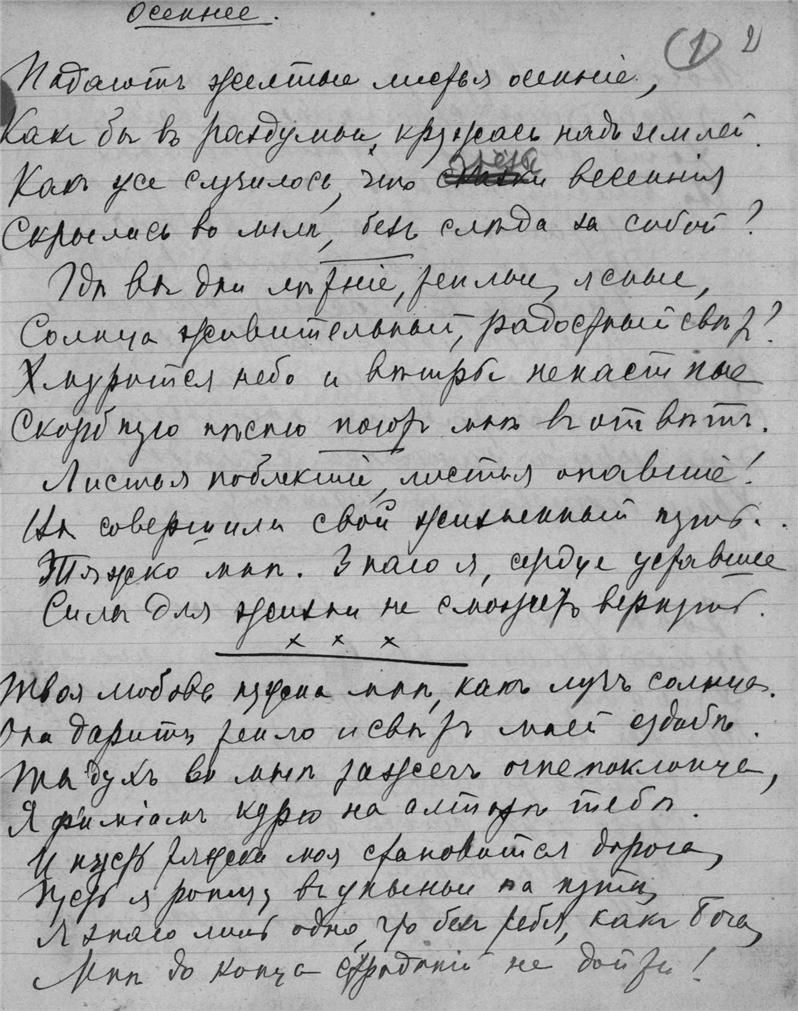 Осеннее.
(1) 2
Падаютъ желтые листья осенніе,
Какъ бы въ раздумьи, кружась надъ землей.
Какъ же случилось, что грезы весеннія
Скрылись во мглѣ, безъ слѣда за собой?
Гдѣ вы дни лѣтніе, теплые, ясные,
Солнца живительный, радостный свѣтъ?
Хмурится небо и вѣтры ненастные
Скорбную пѣсню поютъ мнѣ въ отвѣтъ.
Листья поблекшіе, листья опавшіе!
Вы совершили свой жизненный путь.
Тяжко мнѣ. Знаю я, сердце уставшее
Силы для жизни не сможетъ вернуть.
x x x
Твоя любовь нужна мнѣ, какъ лучъ солнца.
Она даритъ тепло и свѣтъ моей судьбѣ.
Ты духъ во мнѣ зажегъ огнепоклонца,
Я фиміамъ курю на алтарѣ тебѣ.
И пусть тяжка моя становится дорога,
Пусть я ропщу въ уныньи на пути,
Я знаю лишь одно, что безъ тебя, какъ Бога,
Мнѣ до конца страданій не дойти!